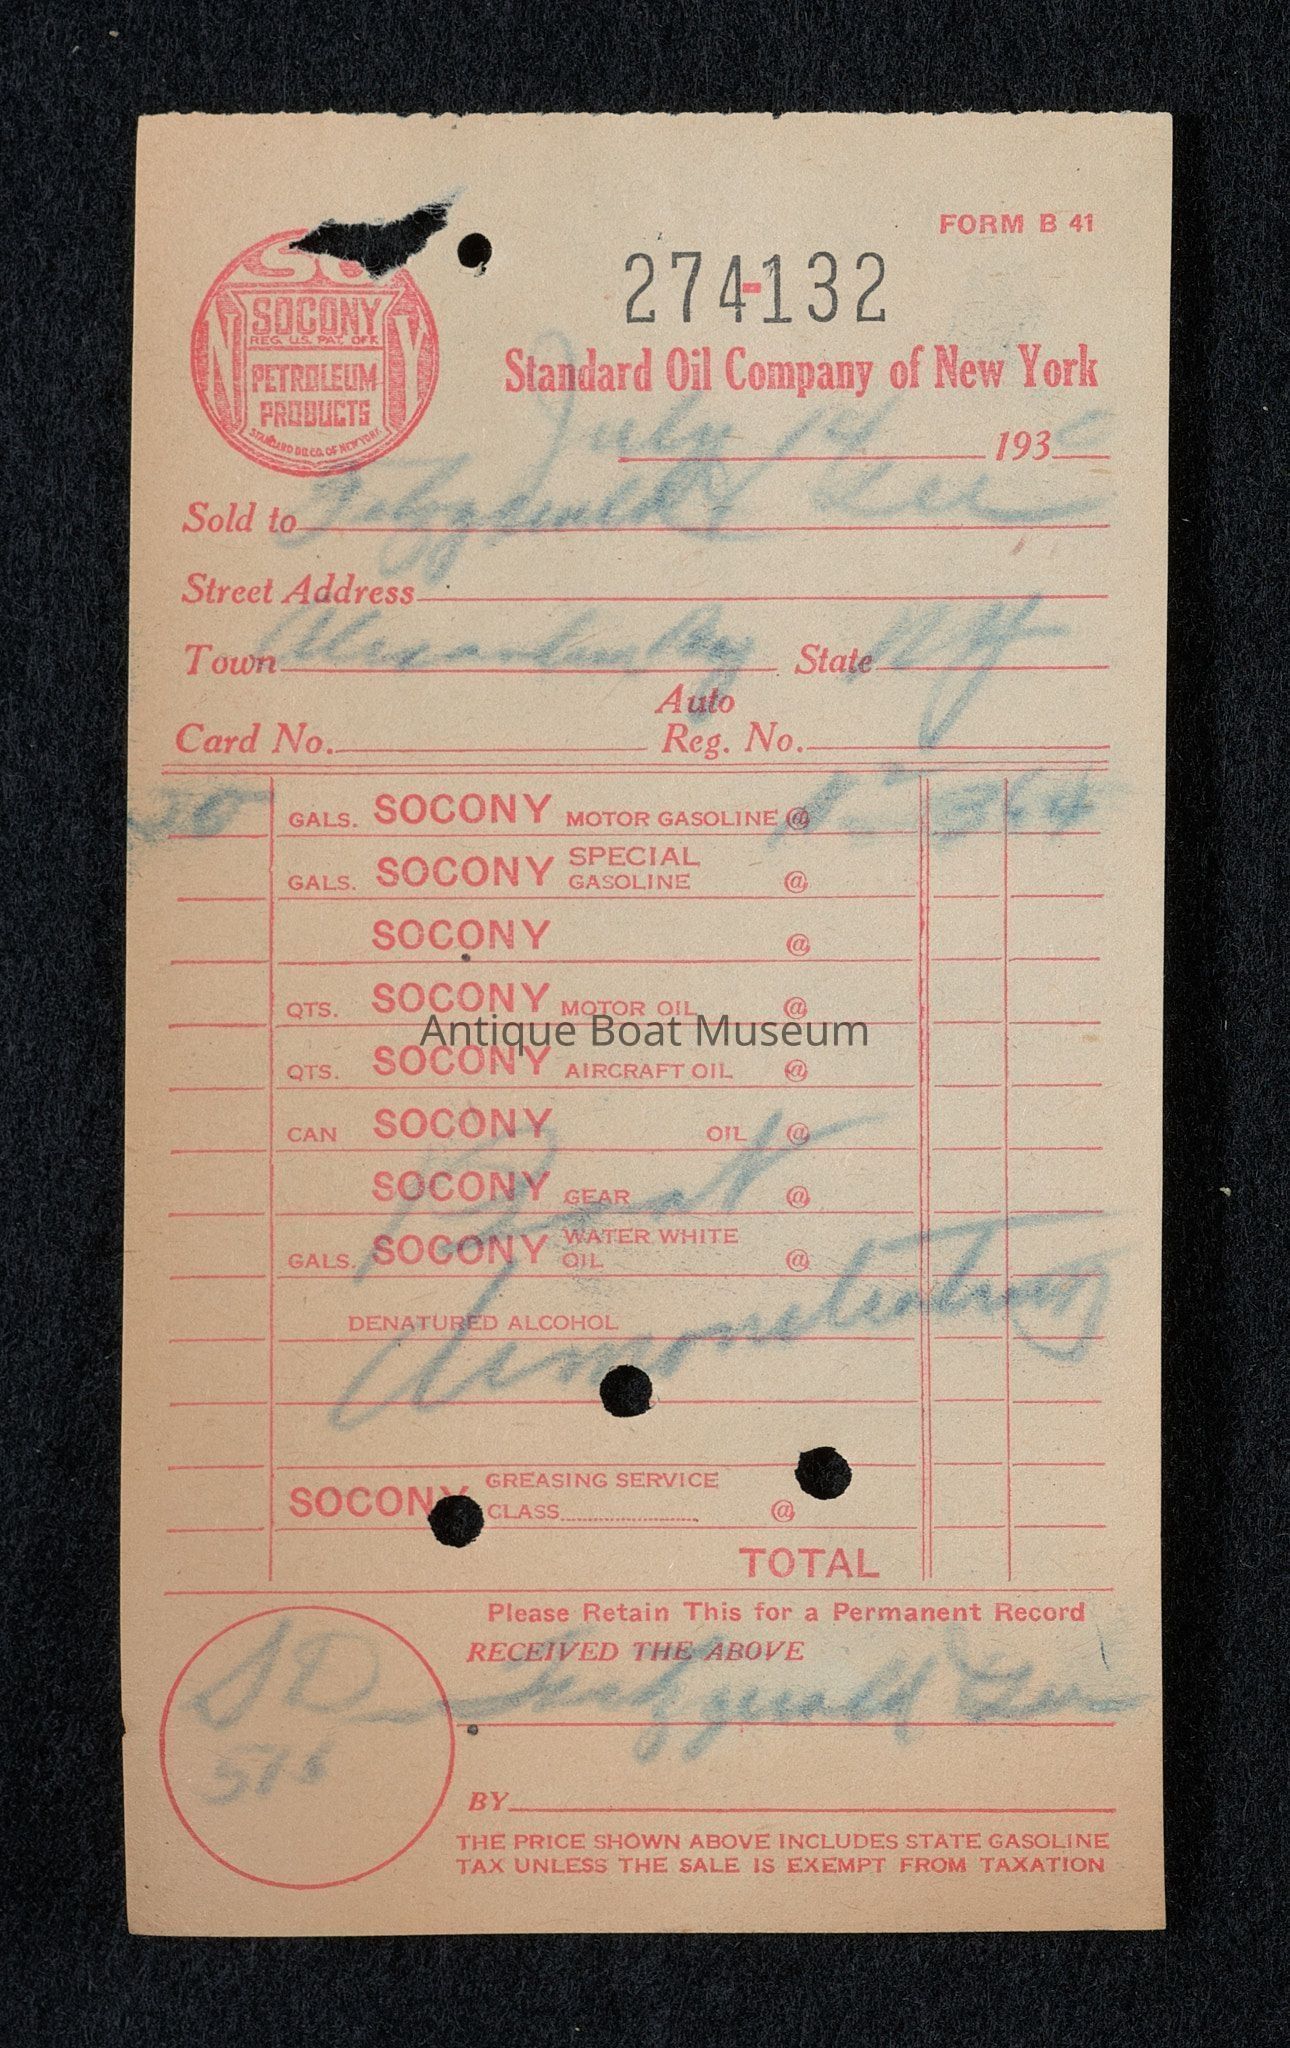 FORM B 41
274-132
SOCONY
REG. U.S. PAT. OFF.
PETROLEUM
PRODUCTS
STANDARD OIL CO. OF NEW YORK
N Y
Standard Oil Company of New York
July 14 193
Sold to Fitzgerald & Lee
Street Address
Town Alexandria Bay State NY
Card No. Auto Reg. No.
GALS. SOCONY MOTOR GASOLINE @
GALS. SOCONY SPECIAL GASOLINE @
SOCONY @
QTS. SOCONY MOTOR OIL @
Antique Boat Museum
QTS. SOCONY AIRCRAFT OIL @
CAN SOCONY OIL @
Boat
SOCONY GEAR @
GALS. SOCONY WATER WHITE OIL @
DENATURED ALCOHOL
SOCONY GREASING SERVICE CLASS @
TOTAL
Please Retain This for a Permanent Record
RECEIVED THE ABOVE
Fitzgerald Lee
BY
THE PRICE SHOWN ABOVE INCLUDES STATE GASOLINE
TAX UNLESS THE SALE IS EXEMPT FROM TAXATION